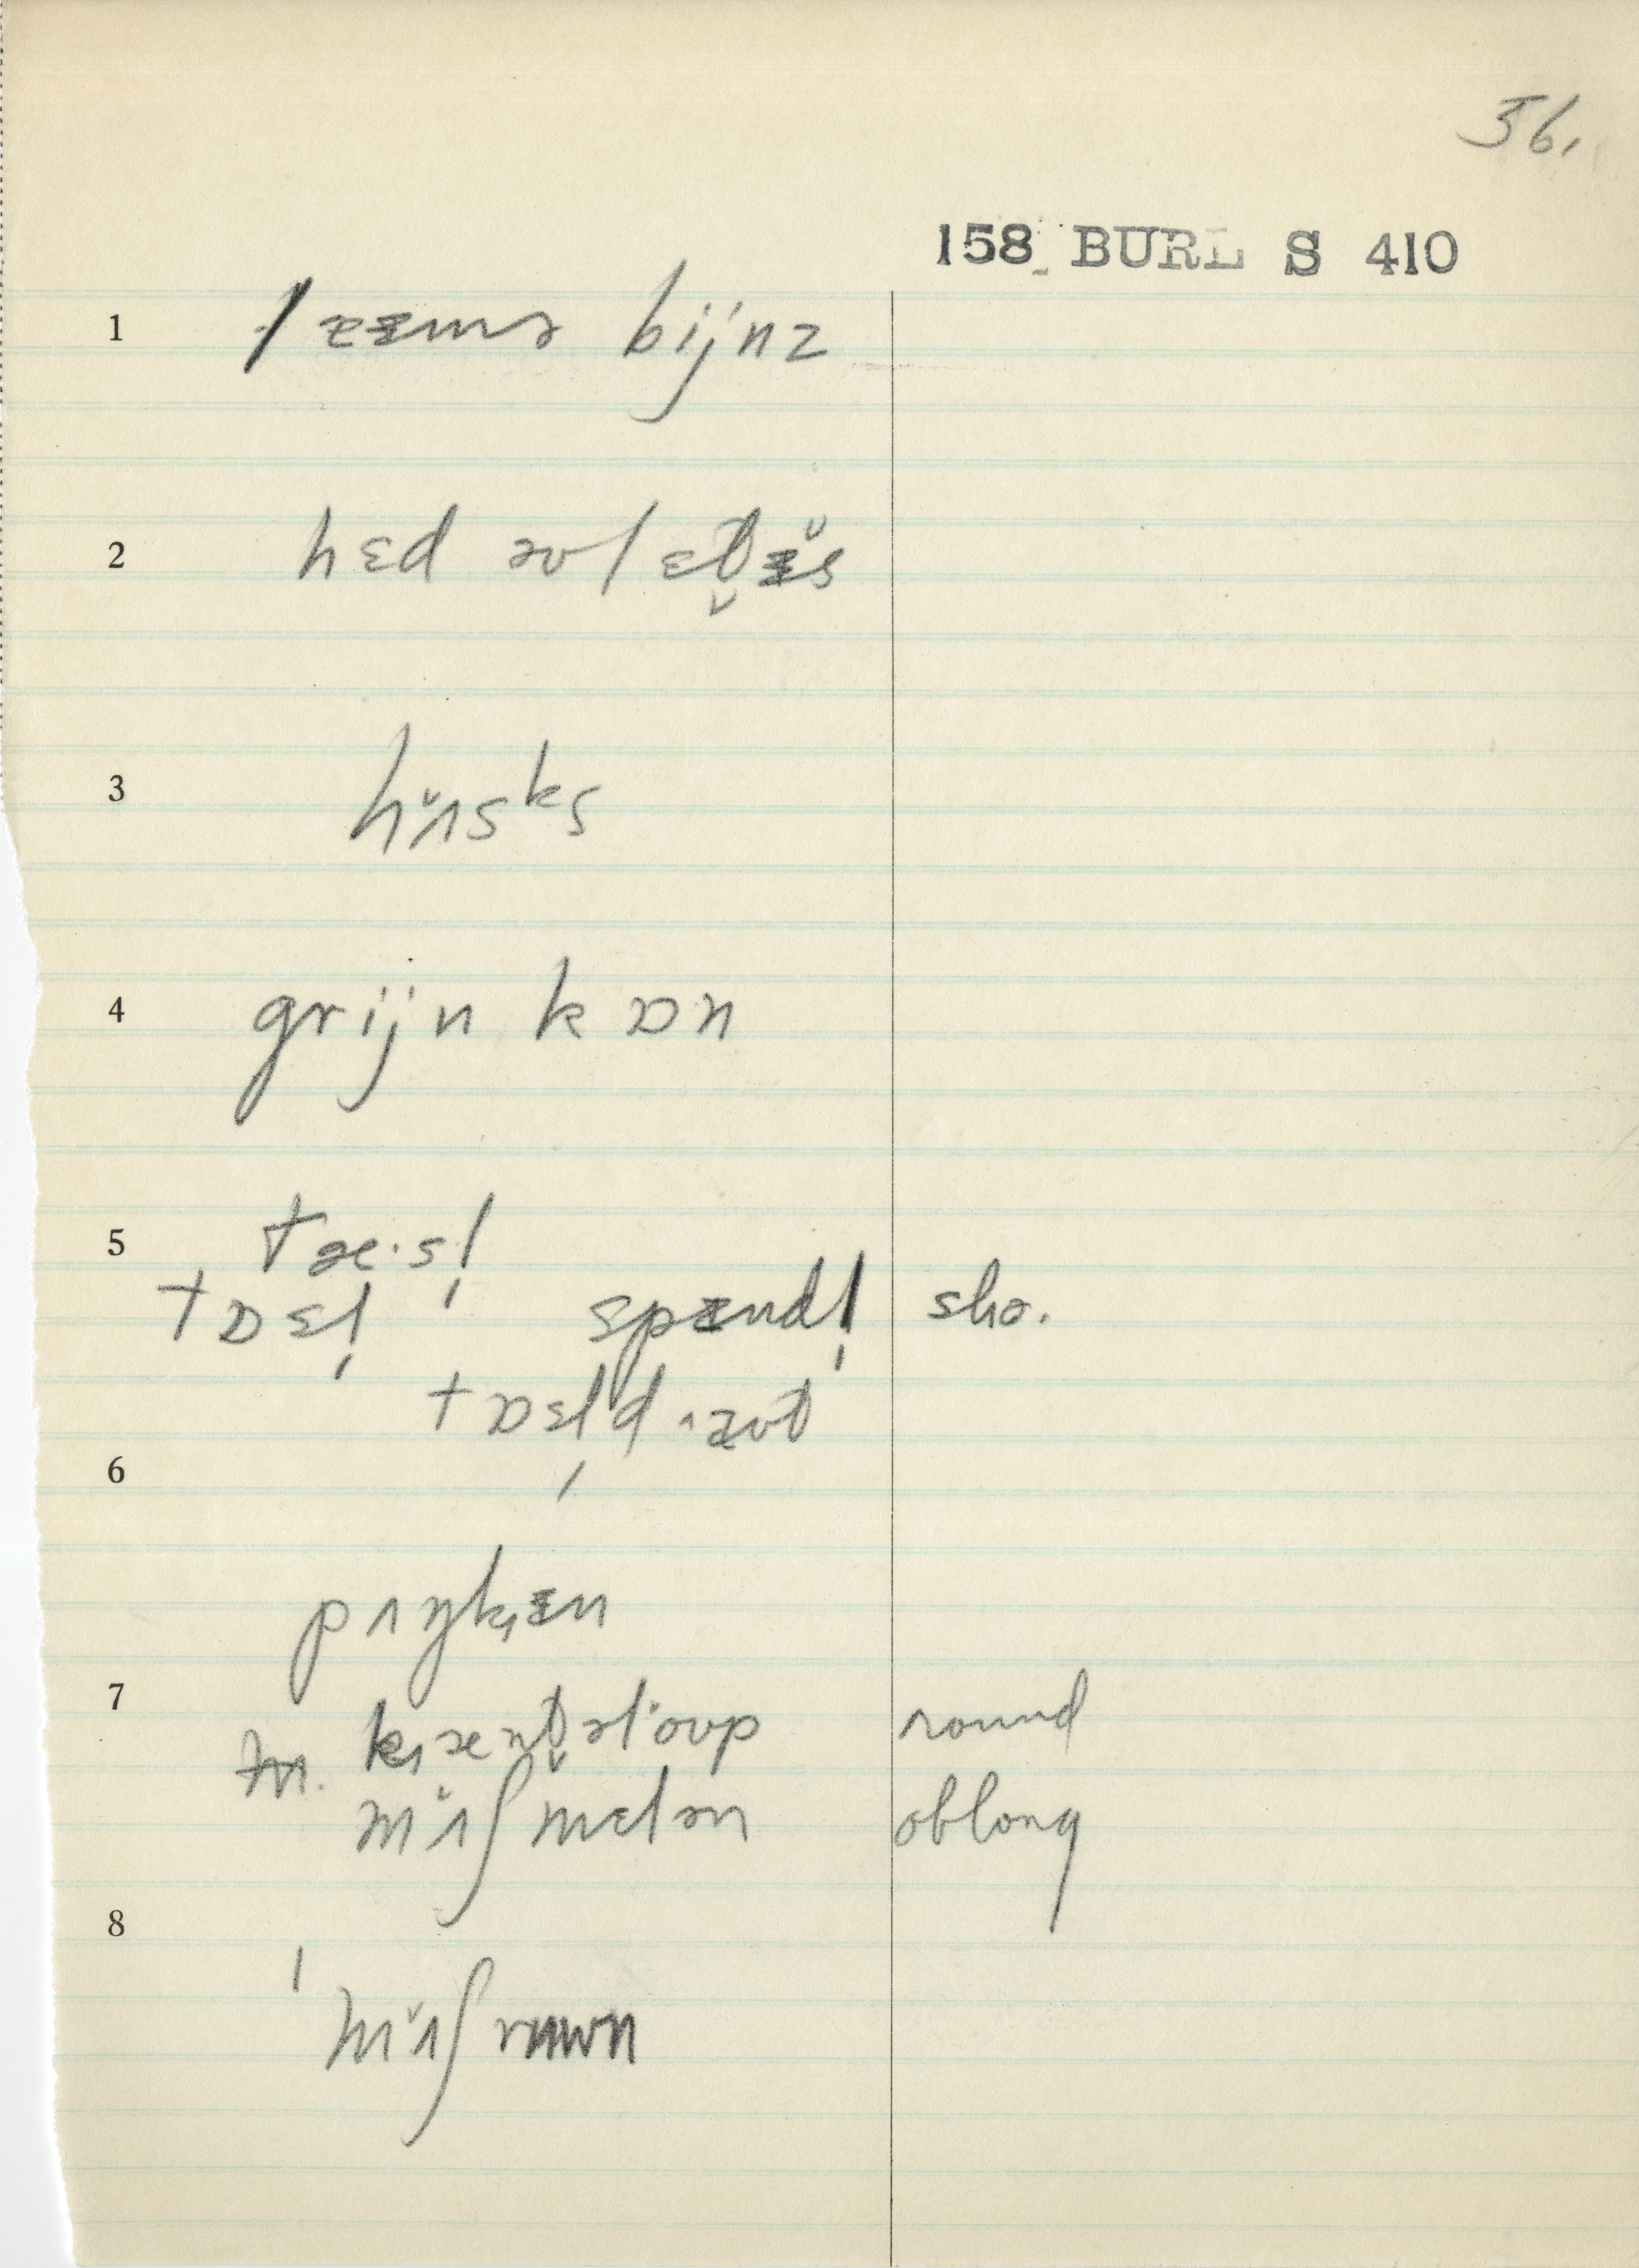 56.
158 BURL S 410
1 læɪmə bijnz
2 hɛd əv lɛt̬ᵻ̆s
3 hʌ̆sᵏs
4 grijn kɒn
5 tæ·sl̩
tɒsl̩ spɪndl̩ sho.
tɒsl̩d aʊt
6
pʌŋkᵻn
7 kæntəl·oʊp round
mʌ̆ʃmɛlən oblong
8
ˈmʌ̆ʃruwn